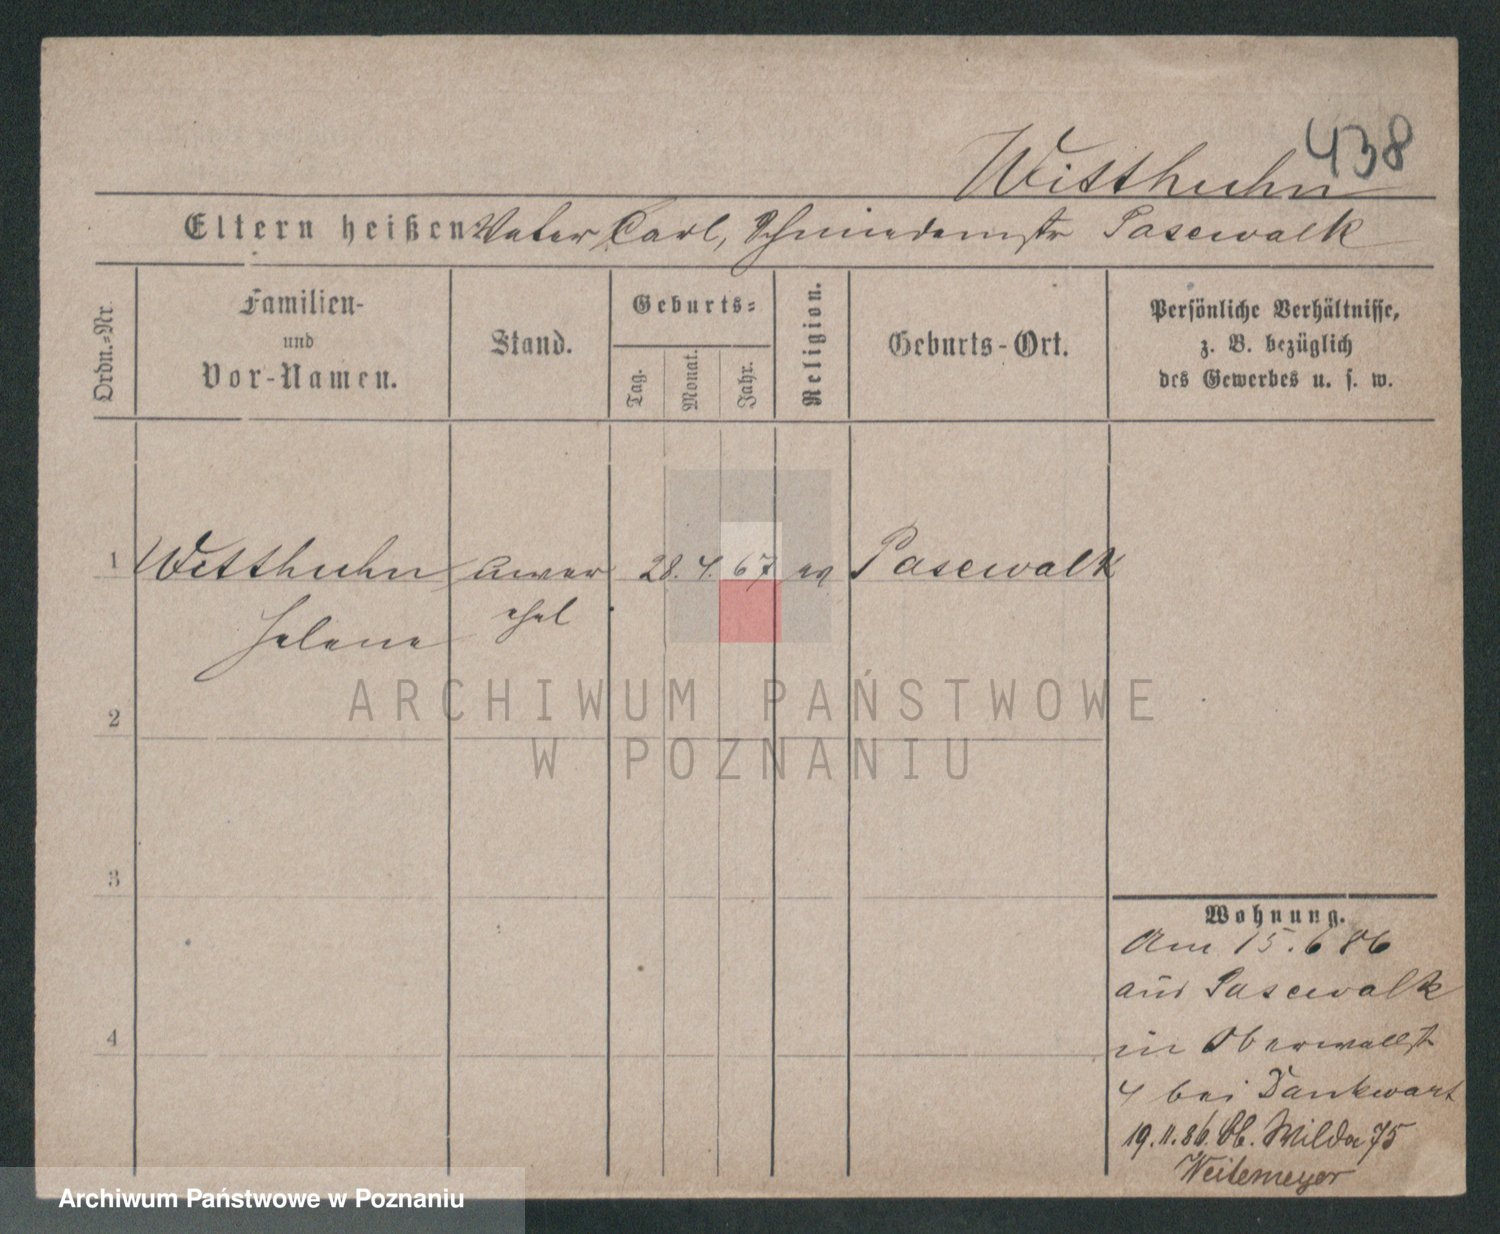 438
Witthuhn
Eltern heißen Vater Carl, Schmiedemstr Pasewalk
Ordn.=Nr.
Familien-
und
Vor-Namen.
Stand.
Geburts=
Tag.
Monat.
Jahr.
Religion.
Geburts-Ort.
Persönliche Verhältnisse,
z. B. bezüglich
des Gewerbes u. s. w.
1 Witthuhn unver 28. 4. 67 ev Pasewalk
Helene ehel
2
3
4
Wohnung.
Am 15.6 86
aus Pasewalk
in Oberwallst
4 bei Dankwart
19.11.86. Ob. Wilda 75
Weitemeyer
ARCHIWUM PAŃSTWOWE
W POZNANIU
Archiwum Państwowe w Poznaniu